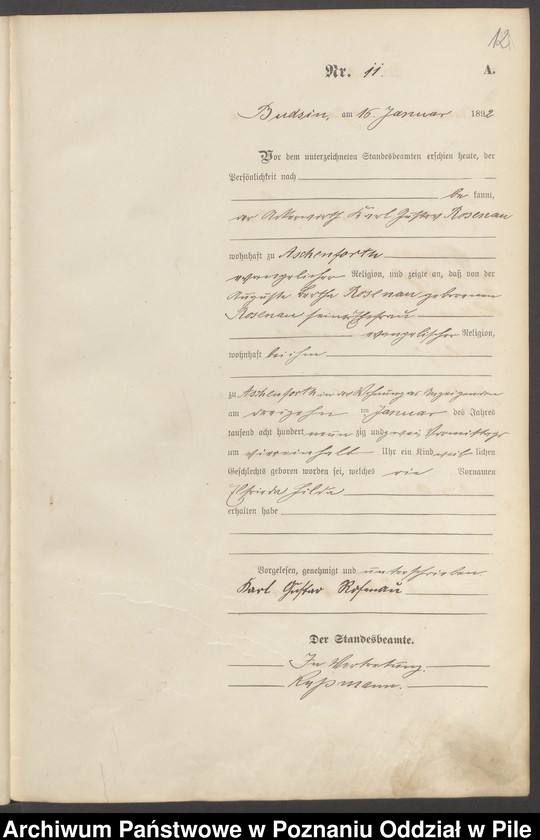 12.
Nr. 11. A.
Budsin, am 16. Januar 1892
Vor dem unterzeichneten Standesbeamten erschien heute, der
Persönlichkeit nach
be kannt,
der Ackerwirth Karl Gustav Rosenau
wohnhaft zu Aschenforth
evangelischer Religion, und zeigte an, daß von der
Auguste Bertha Rosenau geborenen
Rosenau seiner Ehefrau
evangelischer Religion,
wohnhaft bei ihm
zu Aschenforth in der Wohnung des Anzeigenden
am dreizehn ten Januar des Jahres
tausend acht hundert neun zig und zwei Vormittags
um viereinhalb Uhr ein Kind weib lichen
Geschlechts geboren worden sei, welches die Vornamen
Elfrieda Hilda
erhalten habe
Vorgelesen, genehmigt und unterschrieben.
Karl Gustav Rosenau
Der Standesbeamte.
In Vertretung.
Archiwum Państwowe w Poznaniu Oddział w Pile